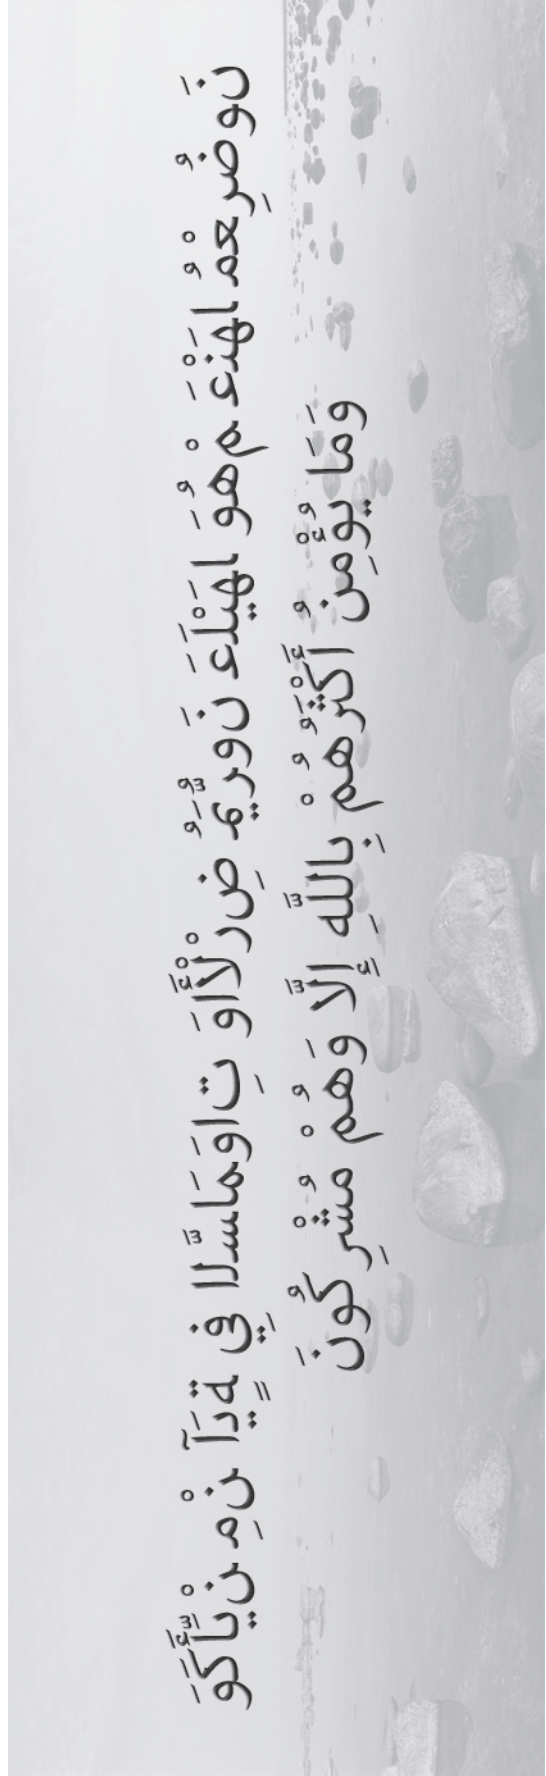 وَكَأَيِّنْ مِنْ آيَةٍ فِي السَّمَاوَاتِ وَالْأَرْضِ يَمُرُّونَ عَلَيْهَا وَهُمْ عَنْهَا مُعْرِضُونَ
وَمَا يُؤْمِنُ أَكْثَرُهُمْ بِاللَّهِ إِلَّا وَهُمْ مُشْرِكُونَ